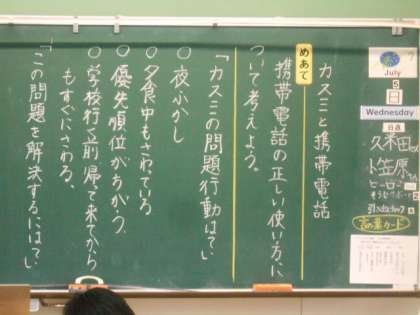 カスミと携帯電話
めあて
携帯電話の正しい使い方に
ついて考えよう。
「カスミの問題行動は?」
○夜ふかし
○夕食中もさわっている
○優先順位がちがう
○学校行く前、帰って来てから
もすぐにさわる、
「この問題を解決するには?」
July
5
日
Wednesday
日直
久米田
小笠原
ヒーロー
音楽カード